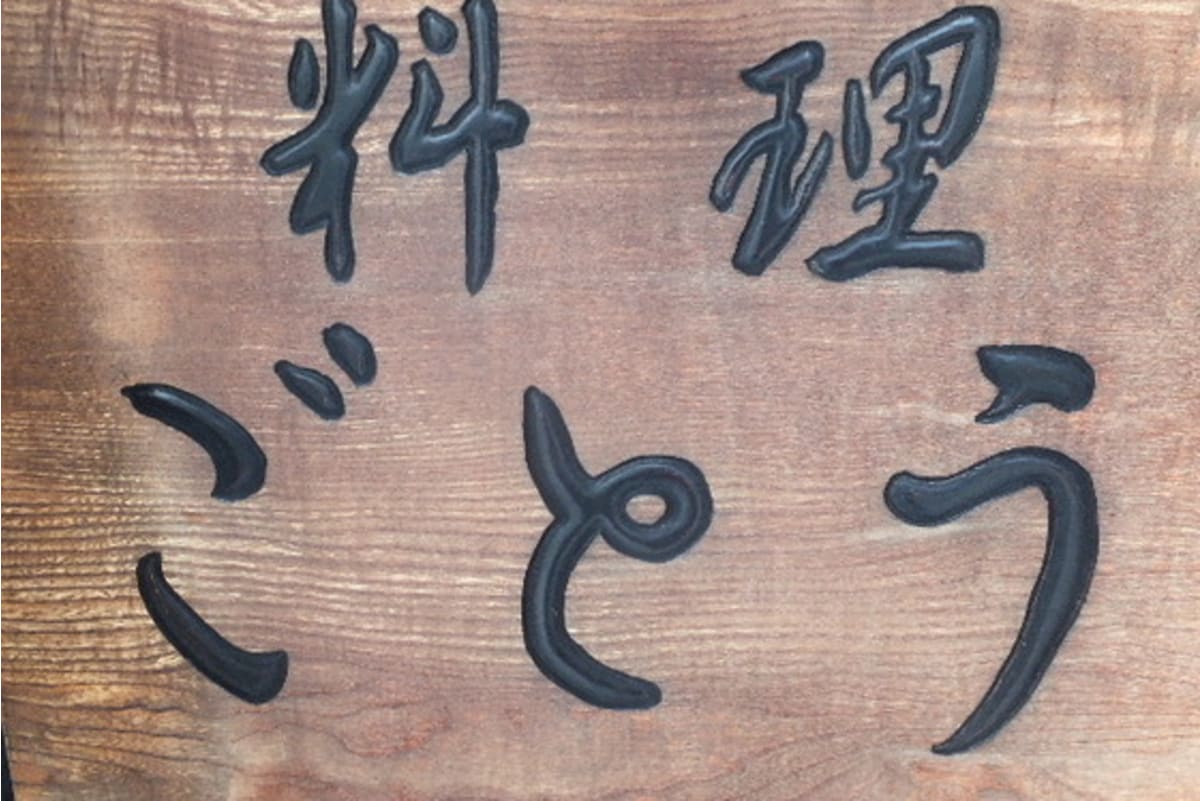 料理
ごとう